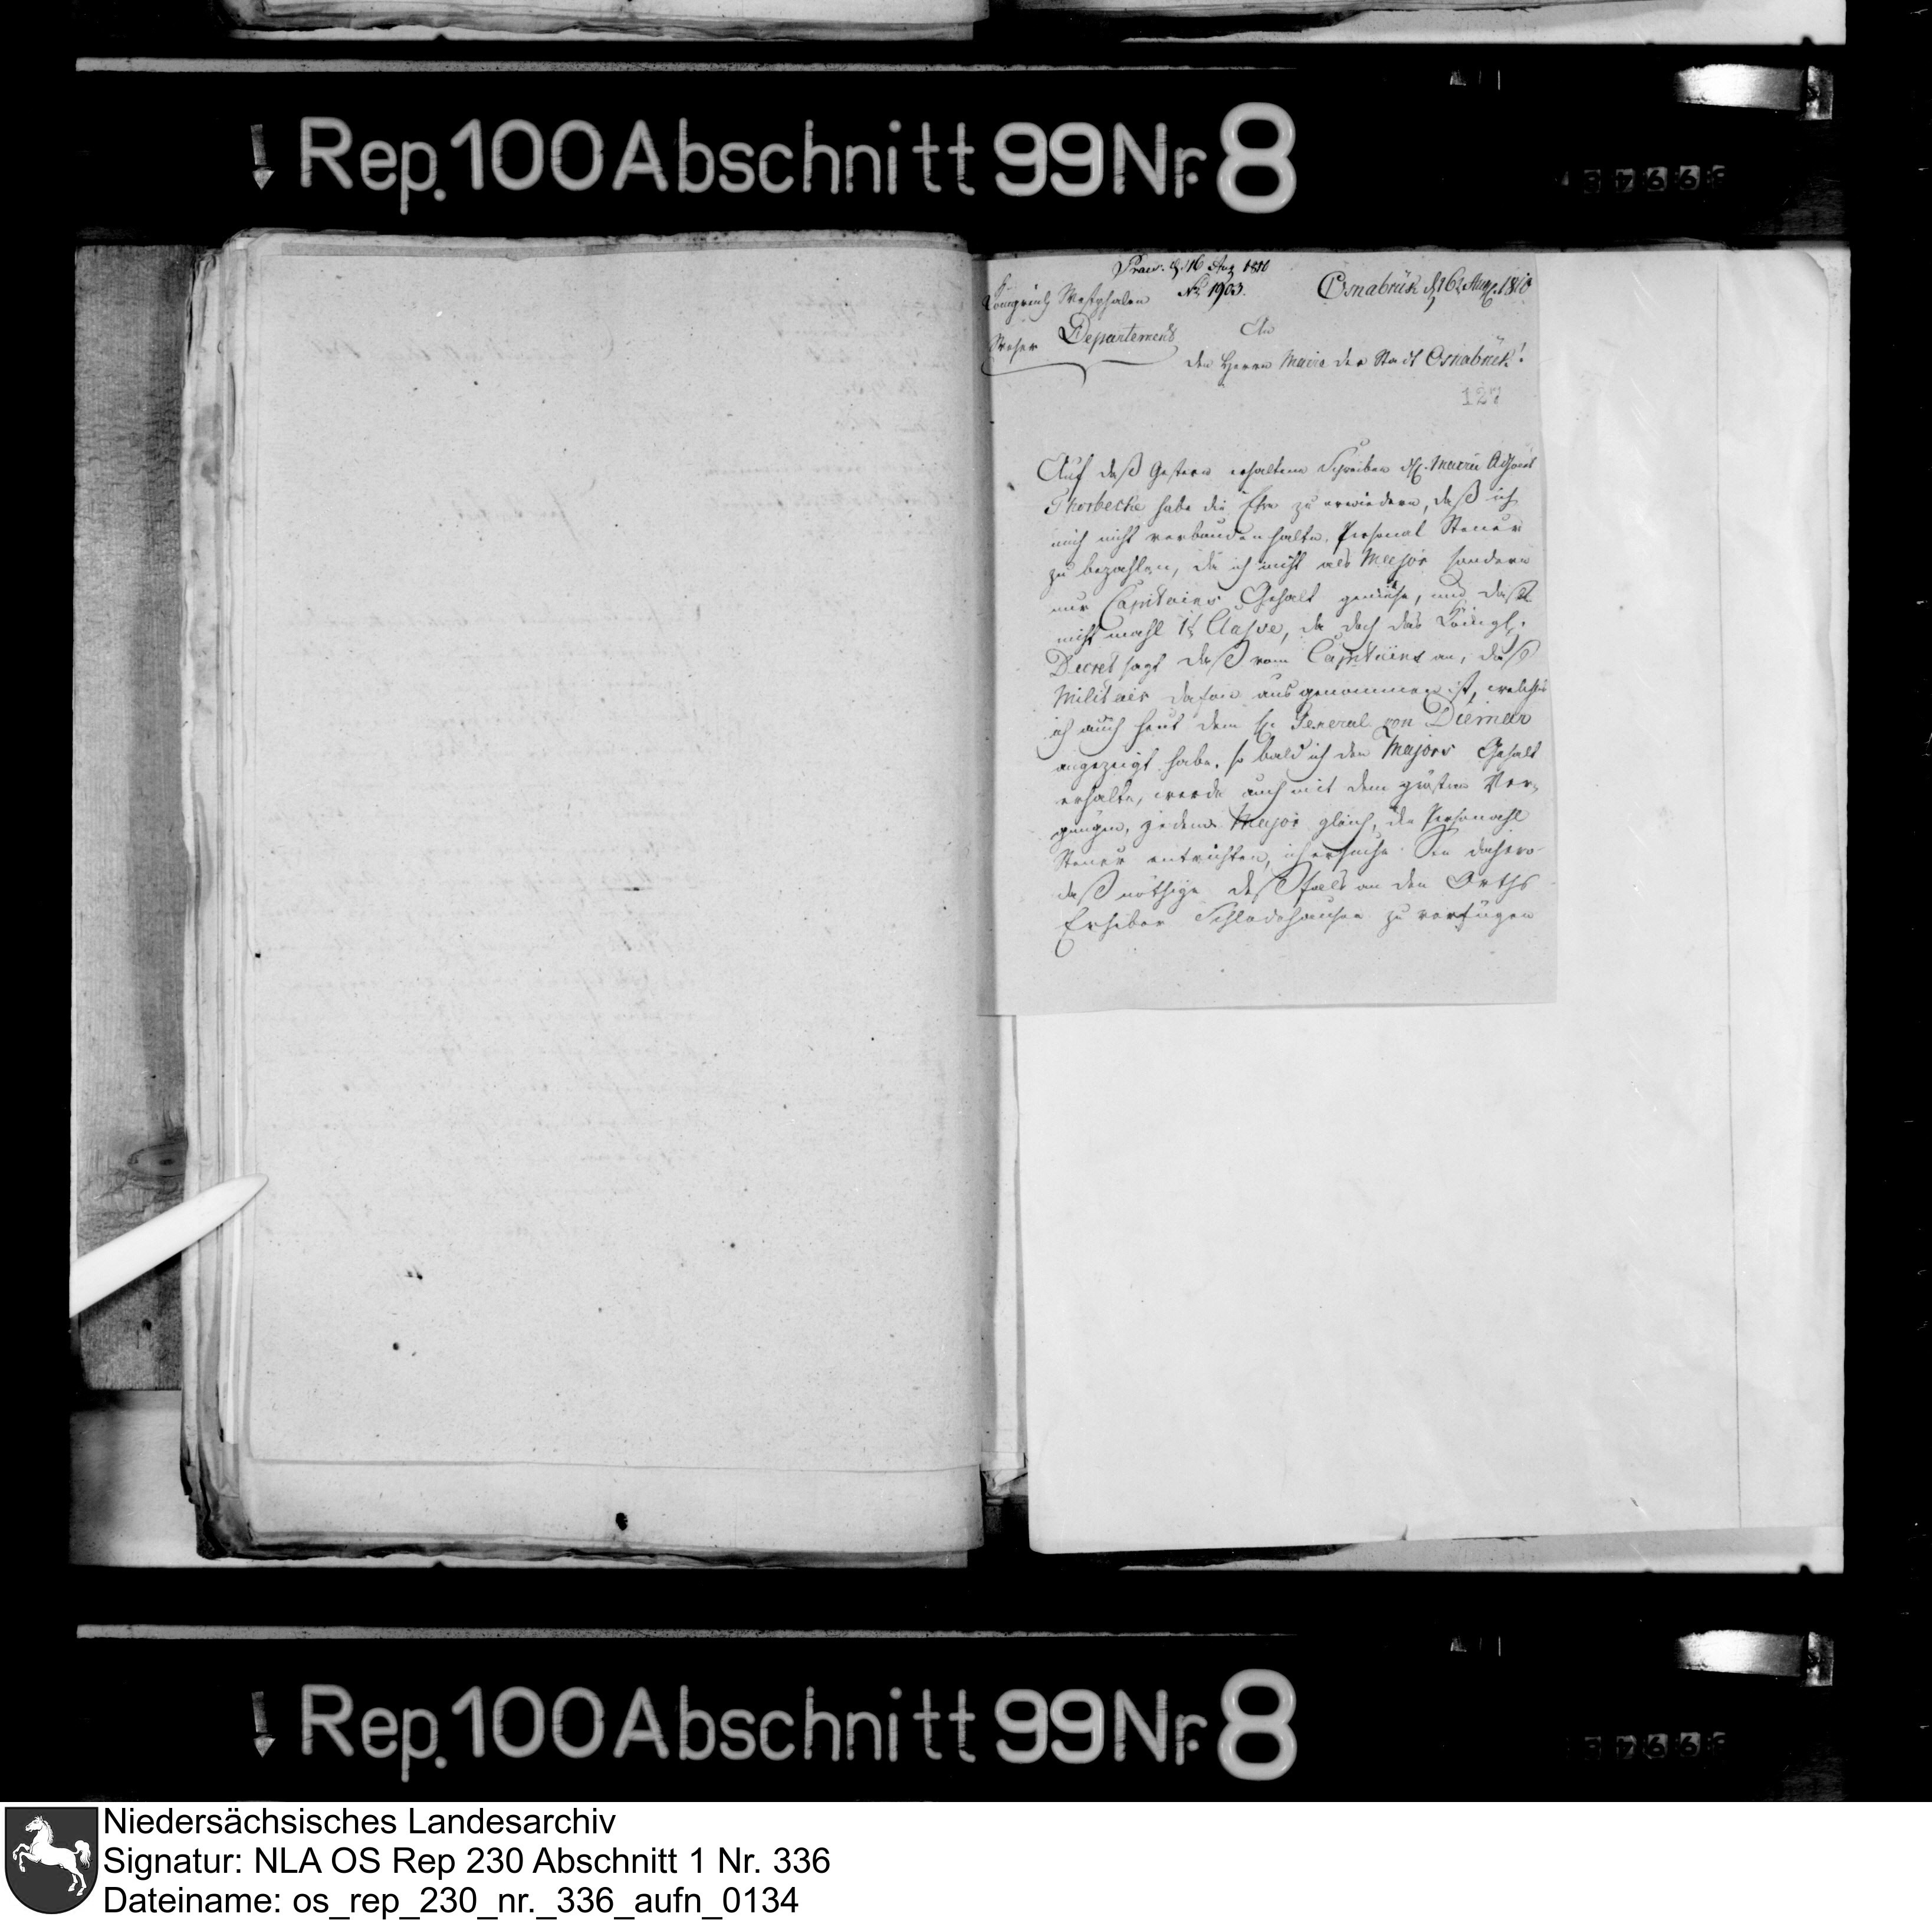 Rep. 100 Abschnitt 99 Nr. 8
Praes. d. 16 Aug 1810
No. 1903.
Osnabrük d 16t Aug. 1810
Königreich Westphalen
Weser Departement
An
den Herrn Maire der Stadt Osnabrük!
127
Auf daß gestern erhaltene Schreiben des H. Mairie Adjoint
Thorbecke habe die Ehre zu erwiedern, daß ich
mich nicht verbunden halte, Personal Steuer
zu bezahlen, da ich nicht als Major sondern
nur Capitains Gehalt genieße, und daß
nicht mahl 1t Classe, da doch das Königl.
Decret sagt daß vom Capitains an, daß
Militair dafon ausgenommen ist, welches
ich auch heut dem H. General von Diemar
angezeigt habe. so bald ich den Majors Gehalt
erhalte, werde auch mit dem grösten Ver-
gnügen, jedem Major gleich, die Personahl
Steuer entrichten, ich ersuche Sie dahero
daß nöthige deßfals an den Orths
Erheber Schledehausen zu verfügen
Rep. 100 Abschnitt 99 Nr. 8
Niedersächsisches Landesarchiv
Signatur: NLA OS Rep 230 Abschnitt 1 Nr. 336
Dateiname: os_rep_230_nr._336_aufn_0134